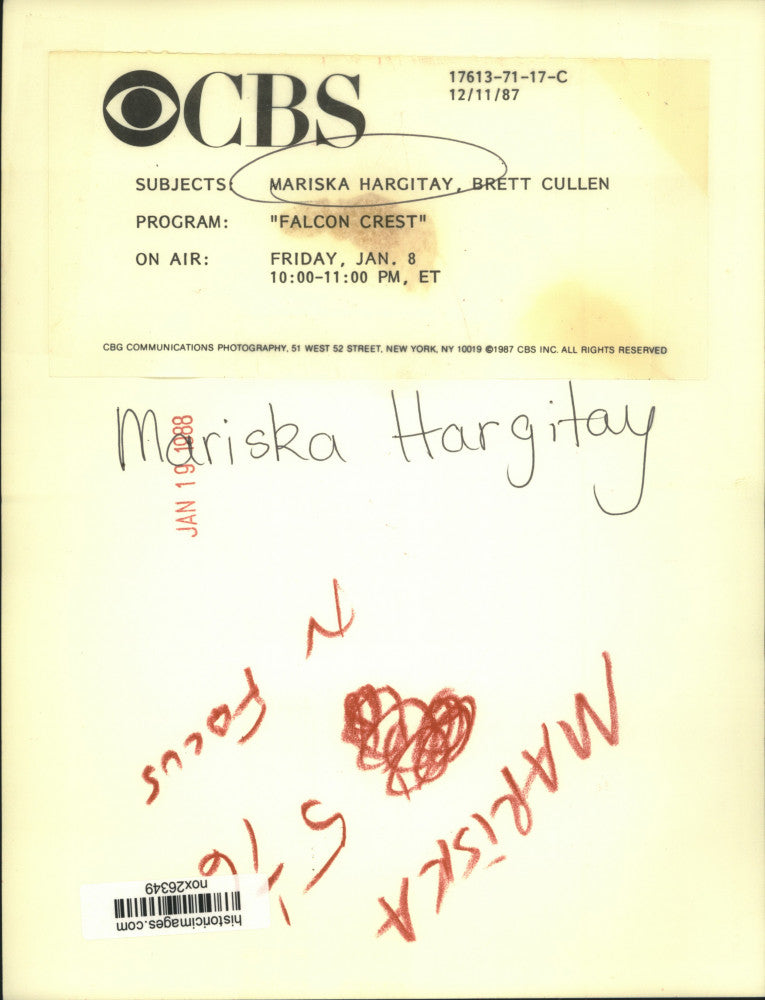 CBS
17613-71-17-C
12/11/87
SUBJECTS: MARISKA HARGITAY, BRETT CULLEN
PROGRAM: "FALCON CREST"
ON AIR: FRIDAY, JAN. 8
10:00-11:00 PM, ET
CBG COMMUNICATIONS PHOTOGRAPHY, 51 WEST 52 STREET, NEW YORK, NY 10019 ©1987 CBS INC. ALL RIGHTS RESERVED
Mariska Hargitay
JAN 19 1988
MARISKA
FOCUS
historicimages.com
nox26349